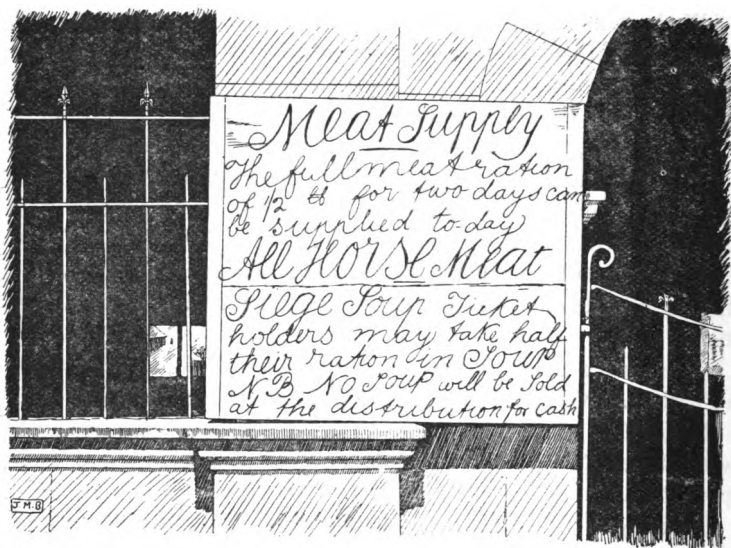 Meat Supply
The full meat ration
of 1/2 ℔ for two days can
be supplied to-day
All HORSE Meat
SIEGE SOUP Ticket
holders may take half
their ration in SOUP
NB NO SOUP will be sold
at the distribution for cash
J M.B